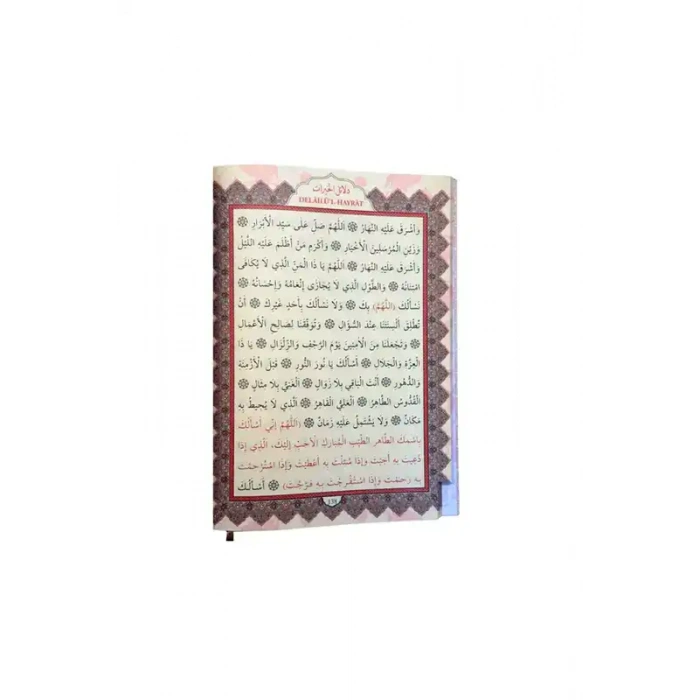 دلائل الخيرات
DELÂİLÜ'L-HAYRÂT
وَأَشْرَقَ عَلَيْهِ النَّهَارُ ۞ اَللّٰهُمَّ صَلِّ عَلٰى سَيِّدِ الْأَبْرَارِ ۞
وَزَيْنِ الْمُرْسَلِينَ الْأَخْيَارِ ۞ وَأَكْرَمِ مَنْ أَظْلَمَ عَلَيْهِ اللَّيْلُ
وَأَشْرَقَ عَلَيْهِ النَّهَارُ ۞ اَللّٰهُمَّ يَا ذَا الْمَنِّ الَّذِي لَا يُكَافٰى
امْتِنَانُهُ ۞ وَالطَّوْلِ الَّذِي لَا يُجَازٰى إِنْعَامُهُ وَإِحْسَانُهُ ۞
نَسْأَلُكَ (اَللّٰهُمَّ) بِكَ ۞ وَلَا نَسْأَلُكَ بِأَحَدٍ غَيْرِكَ ۞ أَنْ
تُطْلِقَ أَلْسِنَتَنَا عِنْدَ السُّؤَالِ ۞ وَتُوَفِّقَنَا لِصَالِحِ الْأَعْمَالِ
۞ وَتَجْعَلَنَا مِنَ الْآمِنِينَ يَوْمَ الرَّجْفِ وَالزِّلْزَالِ ۞ يَا ذَا
الْعِزَّةِ وَالْجَلَالِ ۞ أَسْأَلُكَ يَا نُورَ النُّورِ ۞ قَبْلَ الْأَزْمِنَةِ
وَالدُّهُورِ ۞ أَنْتَ الْبَاقِي بِلَا زَوَالٍ ۞ اَلْغَنِيُّ بِلَا مِثَالٍ ۞
اَلْقُدُّوسُ الطَّاهِرُ ۞ اَلْعَلِيُّ الْقَاهِرُ ۞ الَّذِي لَا يُحِيطُ بِهِ
مَكَانٌ ۞ وَلَا يَشْتَمِلُ عَلَيْهِ زَمَانٌ ۞ (اَللّٰهُمَّ إِنِّي أَسْأَلُكَ
بِاسْمِكَ الطَّاهِرِ الطَّيِّبِ الْمُبَارَكِ الْأَحَبِّ إِلَيْكَ، الَّذِي إِذَا
دُعِيتَ بِهِ أَجَبْتَ وَإِذَا سُئِلْتَ بِهِ أَعْطَيْتَ وَإِذَا اسْتُرْحِمْتَ
بِهِ رَحِمْتَ وَإِذَا اسْتُفْرِجْتَ بِهِ فَرَّجْتَ) ۞ أَسْأَلُكَ